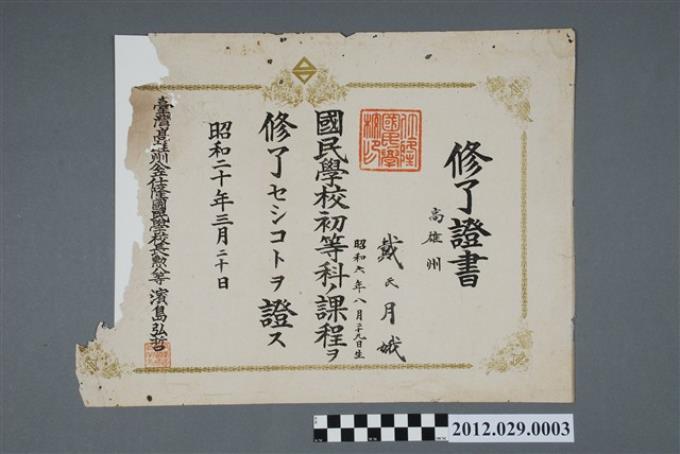 修了證書
高雄州
戴氏月娥
昭和六年八月二十九日生
國民學校初等科ノ課程ヲ
修了セシコトヲ證ス
昭和二十年三月二十日
臺灣高雄州
佐隆國民學校長勲八等 濱島弘哲
2012.029.0003